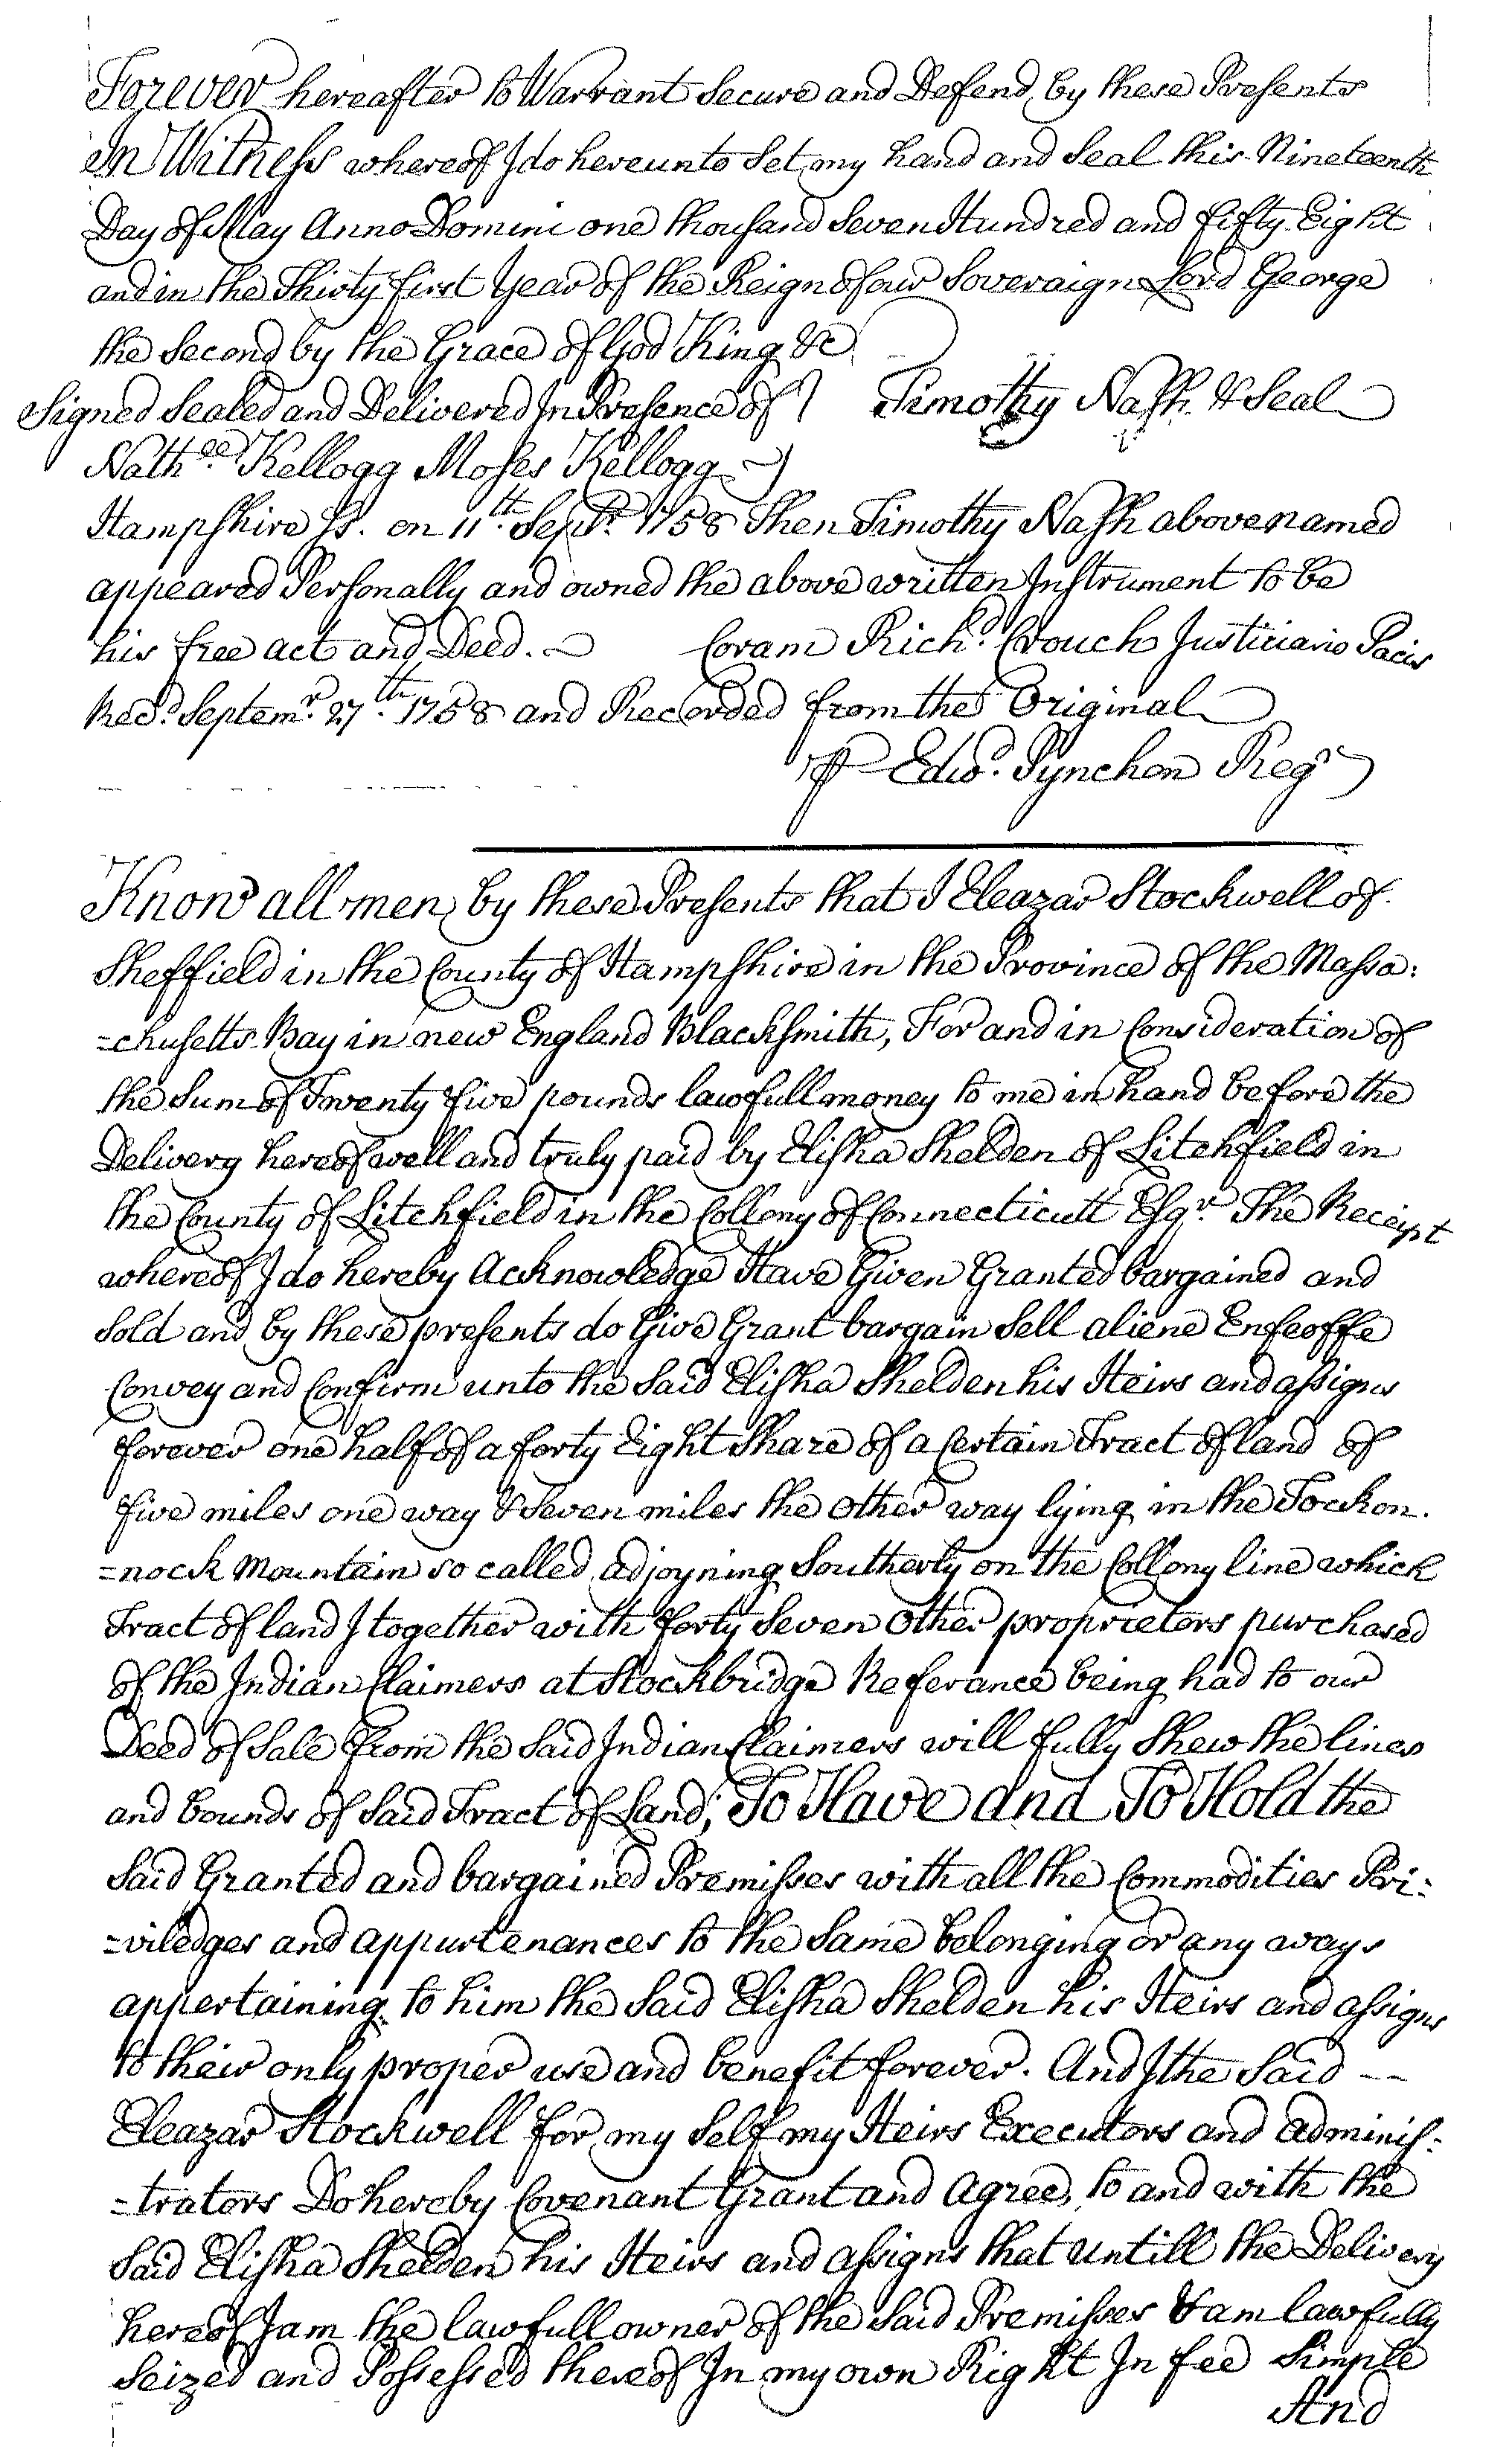 Forever hereafter to Warrant Secure and Defend by these Presents
In Witness whereof I do hereunto Set my hand and Seal this Nineteenth
Day of May Anno Domini one thousand Seven Hundred and fifty Eight
and in the Thirty first Year of the Reign of our Soveraign Lord George
the Second by the Grace of God King &c
Signed Sealed and Delivered In Presence of } Timothy Nash & Seal
Nathll. Kellogg Moses Kellogg
Hampshire Ss. on 11th. Septr. 1758 Then Timothy Nash above named
appeared Personally and owned the above written Instrument to be
his free act and Deed. Coram Richd. Crouch Justiciario Pacis
Recd. Septemr. 27th. 1758 and Recorded from the Original
⅌ Edwd. Pynchon Regr
Know all men by these Presents that I Eleazar Stockwell of
Sheffield in the County of Hampshire in the Province of the Massa:
=chusetts Bay in new England Blacksmith, For and in Consideration of
the Sum of Twenty five pounds lawfull money to me in hand before the
Delivery hereof well and truly paid by Elisha Shelden of Litchfield in
the County of Litchfield in the Collony of Connecticutt Esqr. The Receipt
whereof I do hereby Acknowledge Have Given Granted bargained and
Sold and by these presents do Give Grant bargain Sell aliene Enfeoffe
Convey and Confirm unto the Said Elisha Shelden his Heirs and assigns
forever one half of a forty Eight Share of a Certain Tract of land of
five miles one way & Seven miles the other way lying in the Tockon.
=nock Mountain so called adjoyning Southerly on the Collony line which
Tract of land I together with forty Seven other proprietors purchased
of the Indian Claimers at Stockbridge Referance being had to our
Deed of Sale from the Said Indian Claimers will fully Shew the lines
and bounds of Said Tract of Land; To Have and To Hold the
Said Granted and bargained Premisses with all the Commodities Pri:
=viledges and appurtenances to the Same belonging or any ways
appertaining to him the Said Elisha Shelden his Heirs and assigns
to their only proper use and benefit forever. And I the Said --
Eleazar Stockwell for my Self my Heirs Executors and adminis:
=trators Do hereby Covenant Grant and Agree, to and with the
Said Elisha Shelden his Heirs and assigns that untill the Delivery
hereof I am the lawfull owner of the Said Premisses & am lawfully
Seized and Possessed thereof In my own Right In fee Simple
And